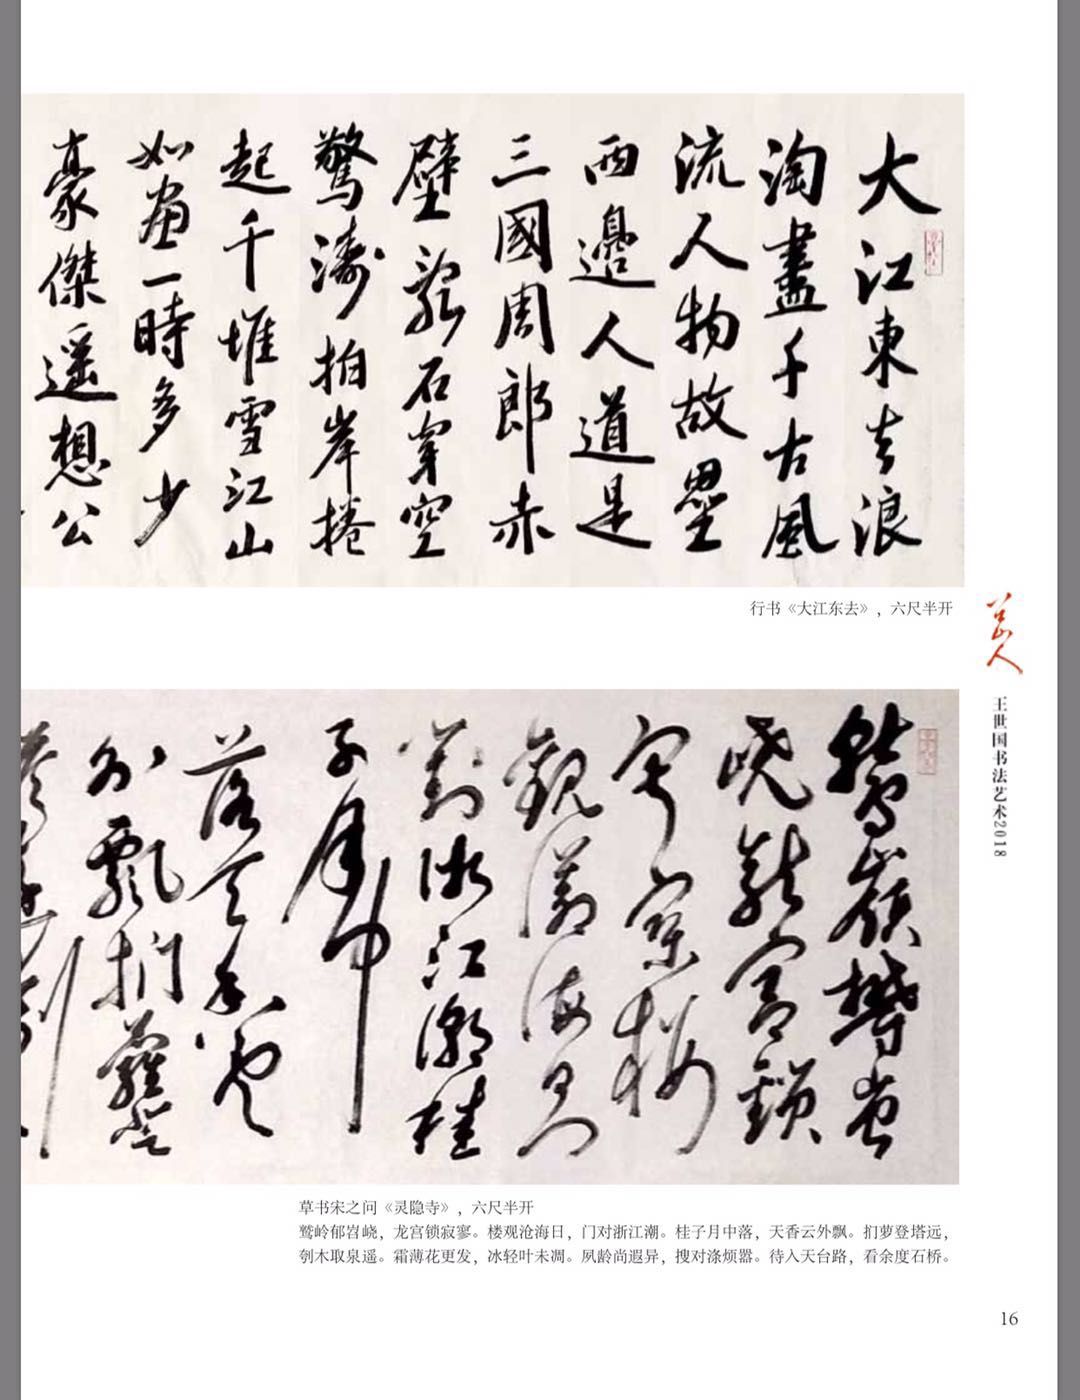 大江東去浪
淘盡千古風
流人物故壘
西邊人道是
三國周郎赤
壁亂石穿空
驚濤拍岸捲
起千堆雪江山
如畫一時多少
豪傑遥想公
行书《大江东去》，六尺半开
王世国书法艺术2018
鷲嶺鬱岧
嶢龍宮鎖
寂寥樓
觀滄海日門
對浙江潮桂
子月中
落天香雲
外飄捫蘿登
草书宋之问《灵隐寺》，六尺半开
鹫岭郁岧峣，龙宫锁寂寥。楼观沧海日，门对浙江潮。桂子月中落，天香云外飘。扪萝登塔远，
刳木取泉遥。霜薄花更发，冰轻叶未凋。夙龄尚遐异，搜对涤烦嚣。待入天台路，看余度石桥。
16